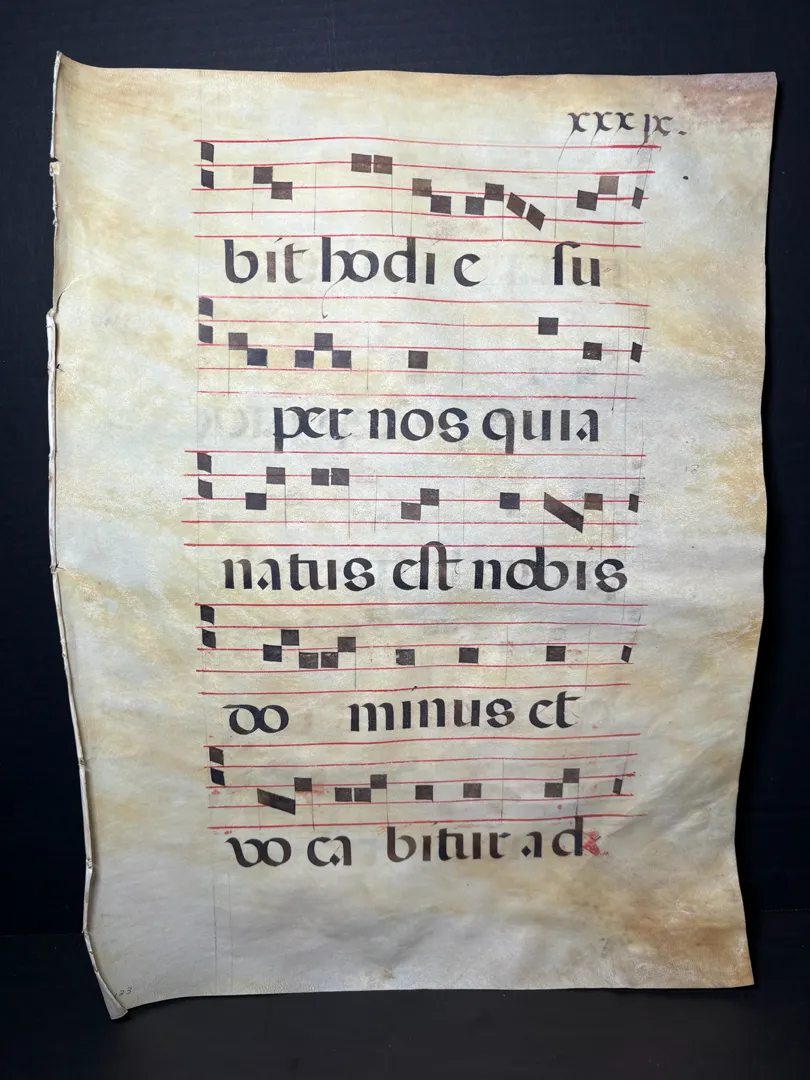 xxxix.
bit hodi e su
per nos quia
natus est nobis
do minus et
vo ca bitur ad
23